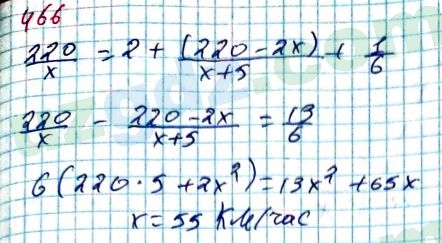 466
220/x = 2 + (220 - 2x)/(x+5) + 1/6
220/x - 220 - 2x/x+5 = 13/6
6(220·5 + 2x²) = 13x² + 65x
x = 55 км/час